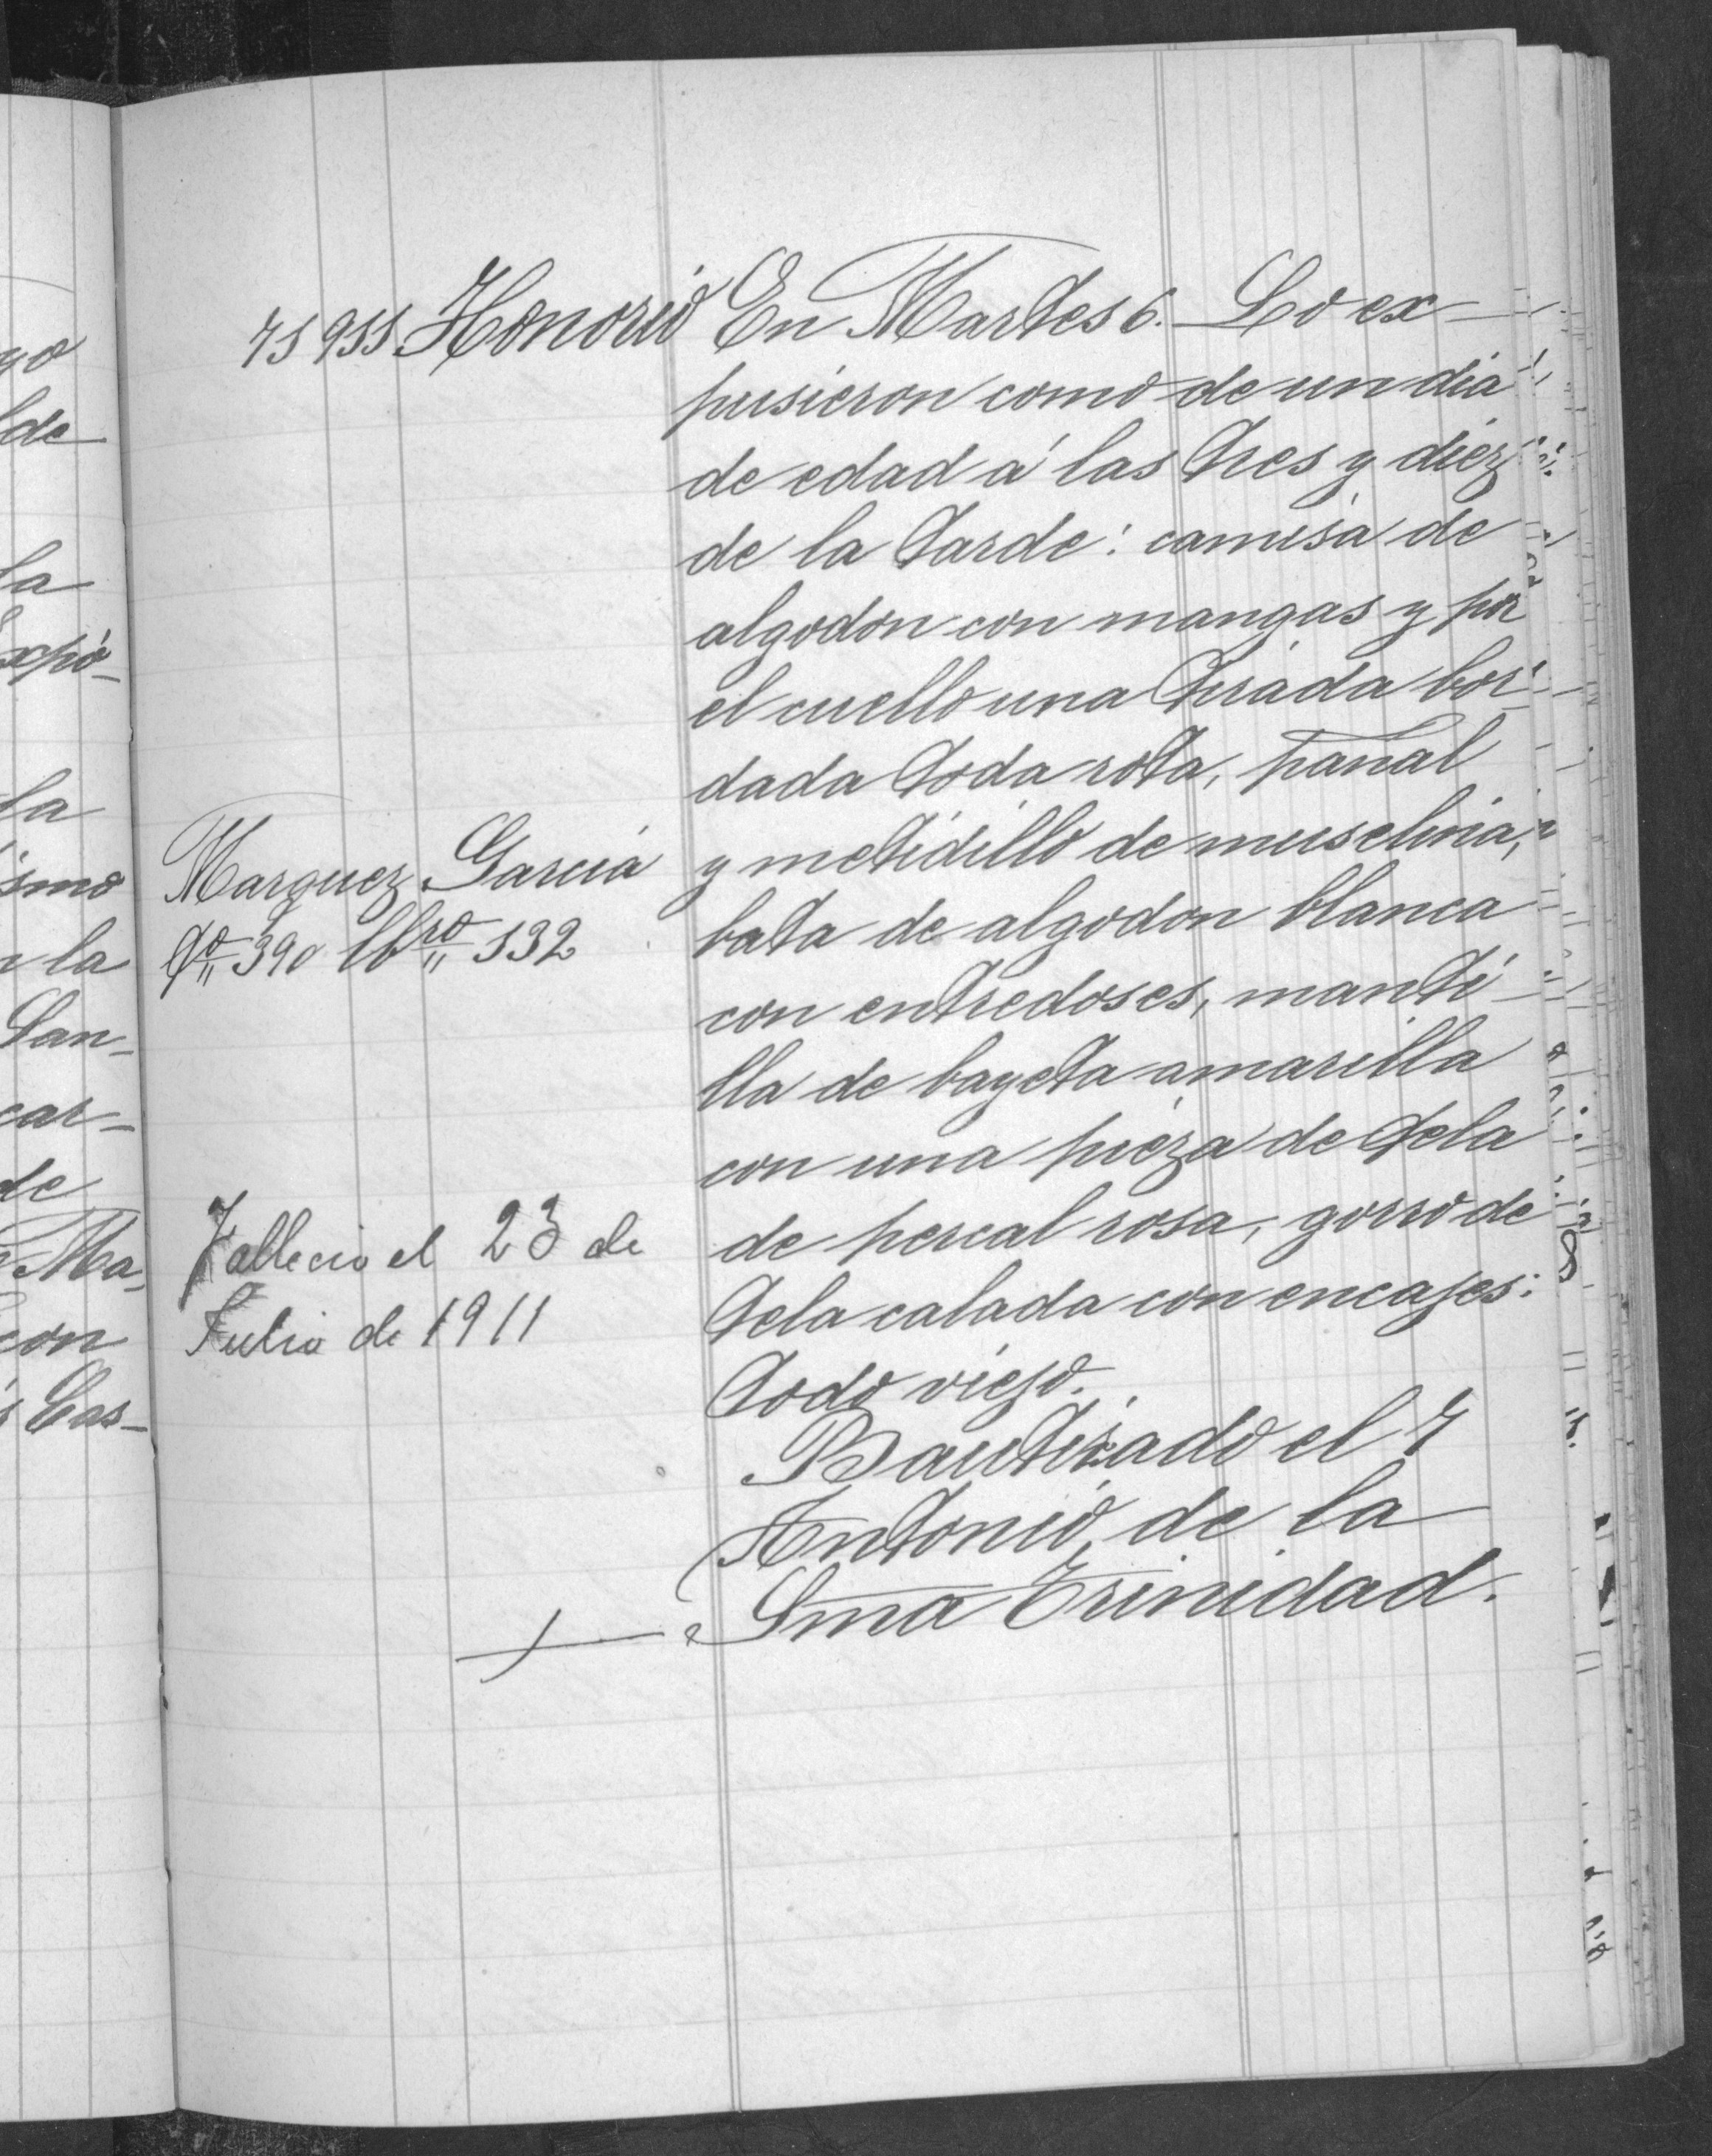 75955 Honorio En Martes 6. Lo ex-
pusieron como de un dia
de edad á las tres y diez
de la tarde: camisa de
algodon con mangas y por
el cuello una tirada bor-
dada toda rota, pañal
y metidillo de muselina,
bata de algodon blanca
con entredoses, manti-
lla de bayeta amarilla
con una pieza de tela
de percal rosa, gorro de
tela calada con encajes:
todo viejo.
Bautizado el 7
Antonio de la
Sma Trinidad.
Marquez Garcia
390 lbro 132
Fallecio el 23 de
Julio de 1911
yo
de
la
xpó-
la
ismo
la
San-
car-
de
Ma-
con
Cas-